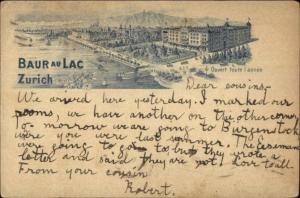 BAUR AU LAC
Zurich
Ouvert toute l'année
Dear cousins,
We arived here yesterday. I marked our
rooms, we hav another on the other corner
To-morrow we are going to Burgenstock
were you were last summer. The
were going to go to but they wrote a
letter and said they are not. Love to all
From your cousin
Robert.